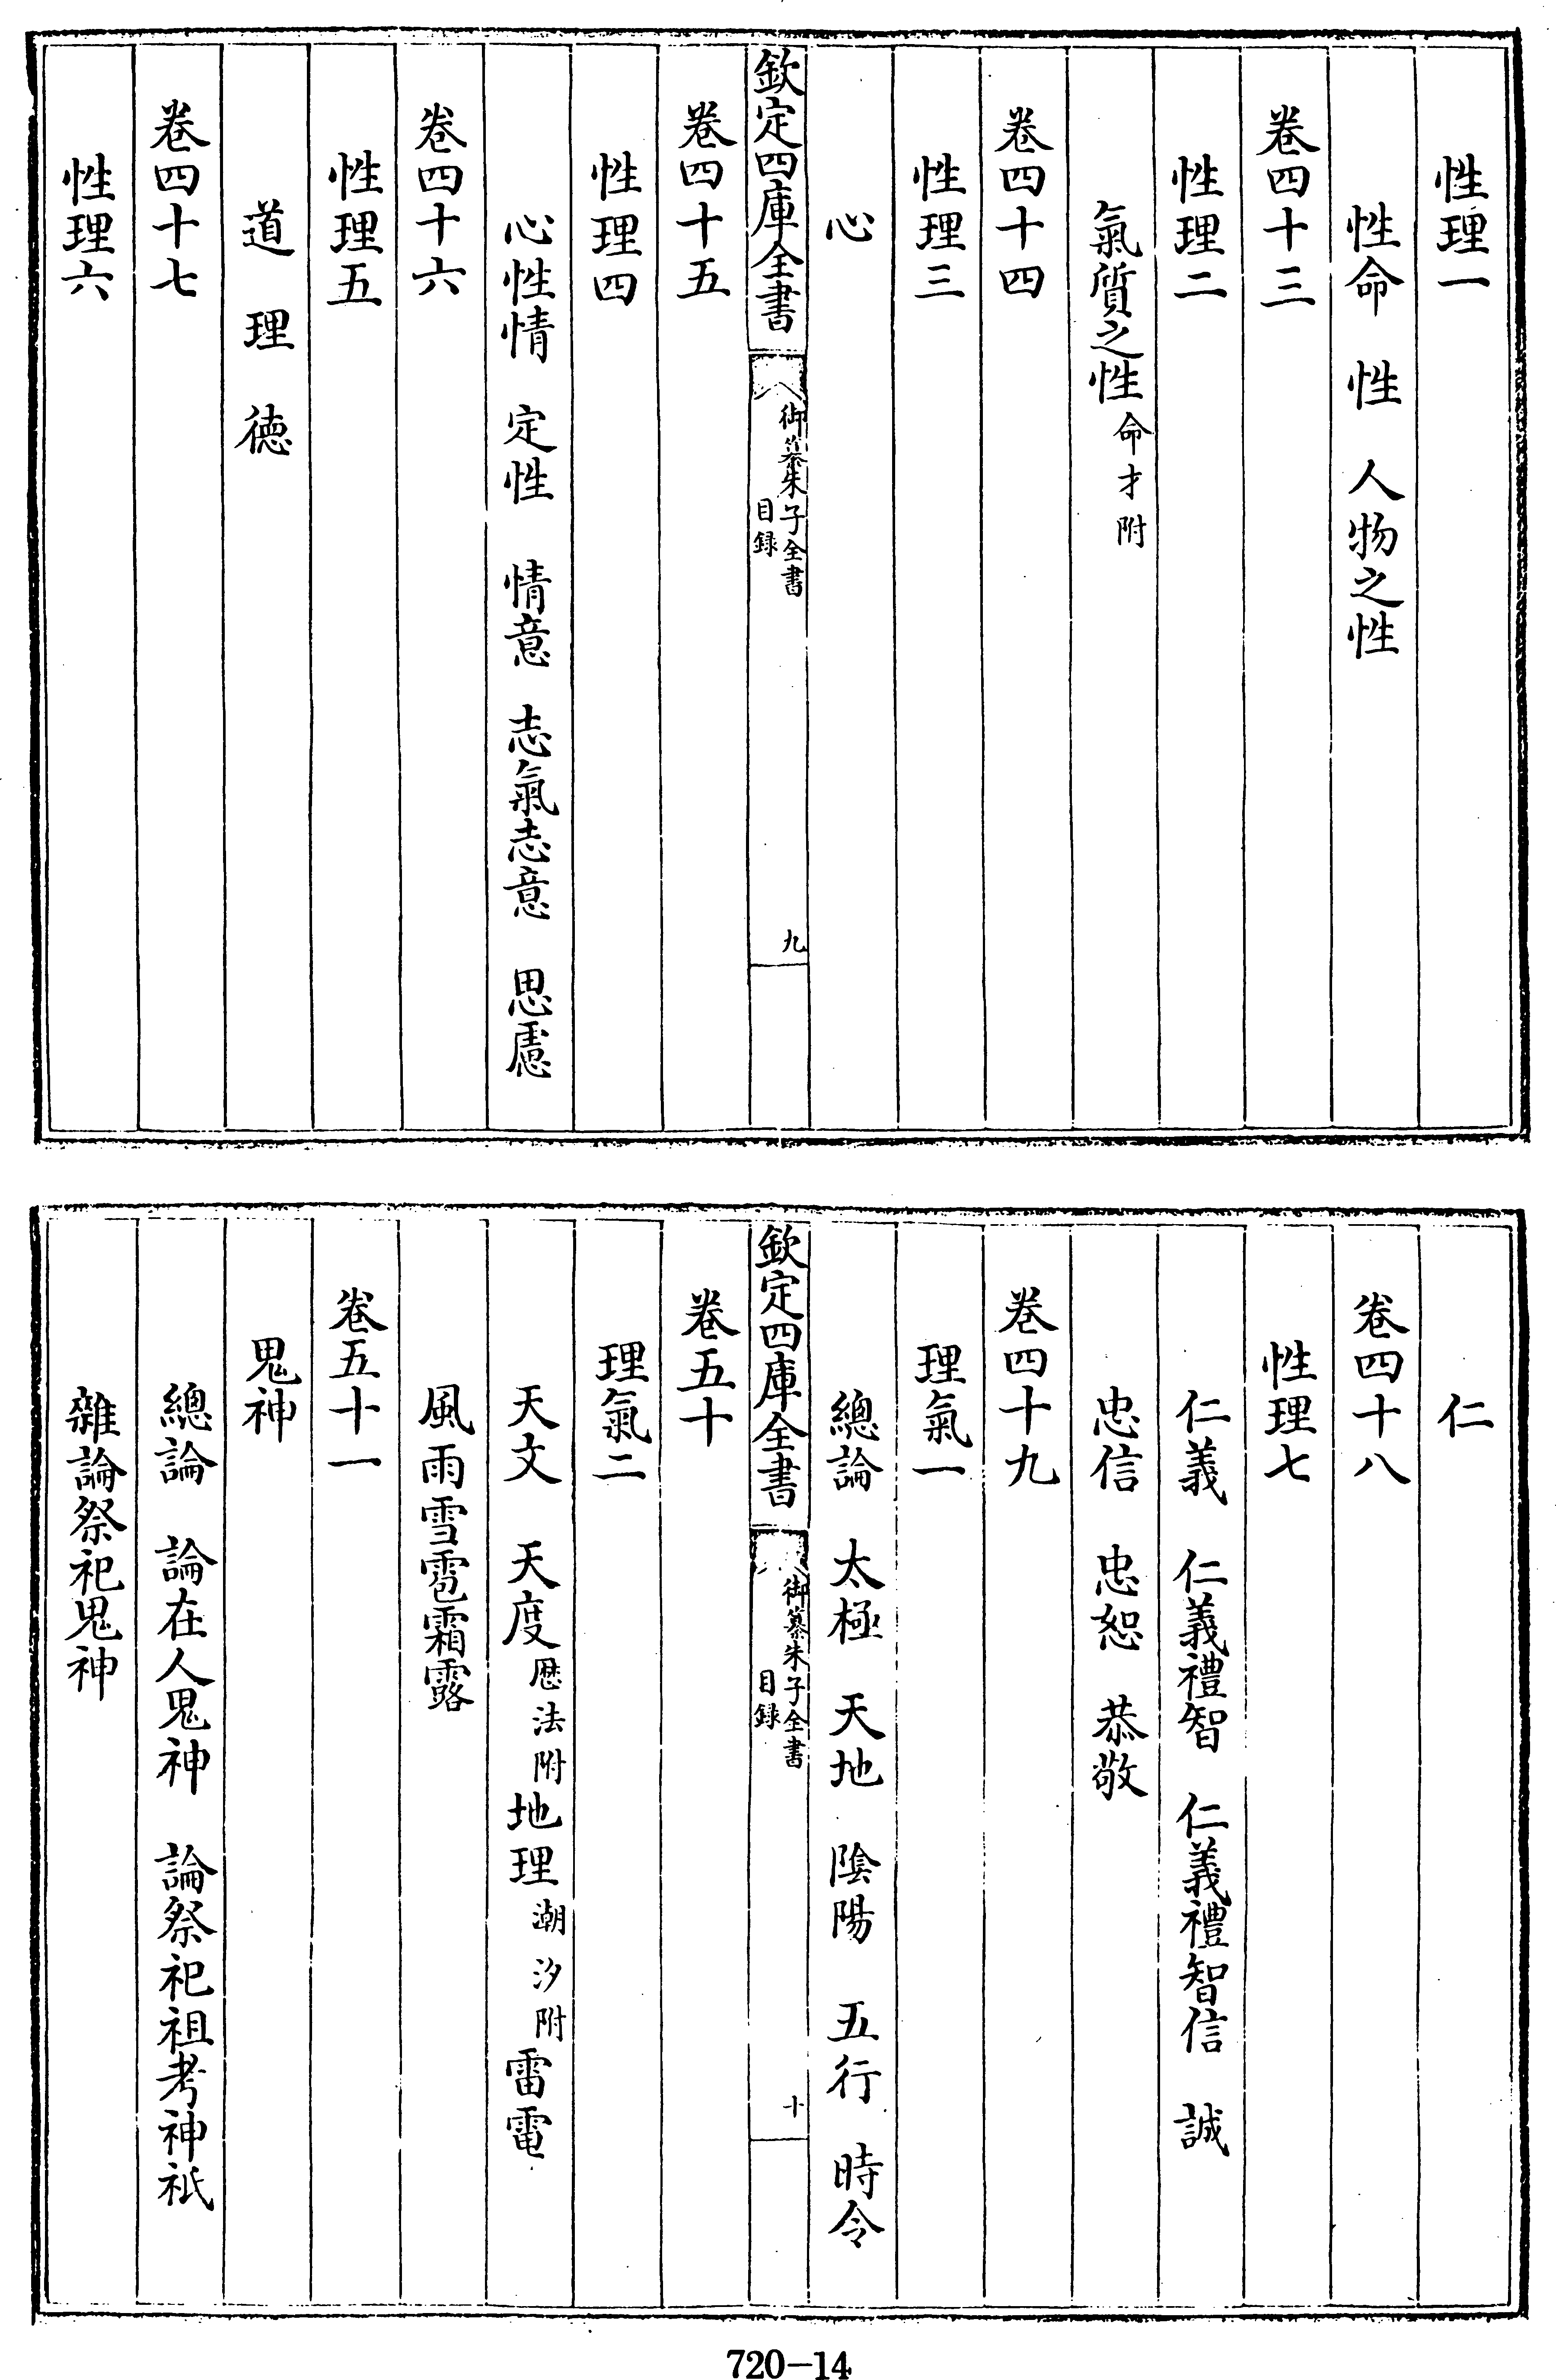 性理一
性命　性　人物之性
卷四十三
性理二
氣質之性命才附
卷四十四
性理三
心
欽定四庫全書
御纂朱子全書
目録
九
卷四十五
性理四
心性情　定性　情意　志氣志意　思慮
卷四十六
性理五
道　理　德
卷四十七
性理六
仁
卷四十八
性理七
仁義　仁義禮智　仁義禮智信　誠
忠信　忠恕　恭敬
卷四十九
理氣一
總論　太極　天地　陰陽　五行　時令
欽定四庫全書
御纂朱子全書
目録
十
卷五十
理氣二
天文　天度歴法附地理潮汐附雷電
風雨雪雹霜露
卷五十一
鬼神
總論　論在人鬼神　論祭祀祖考神祇
雜論祭祀鬼神
720-14